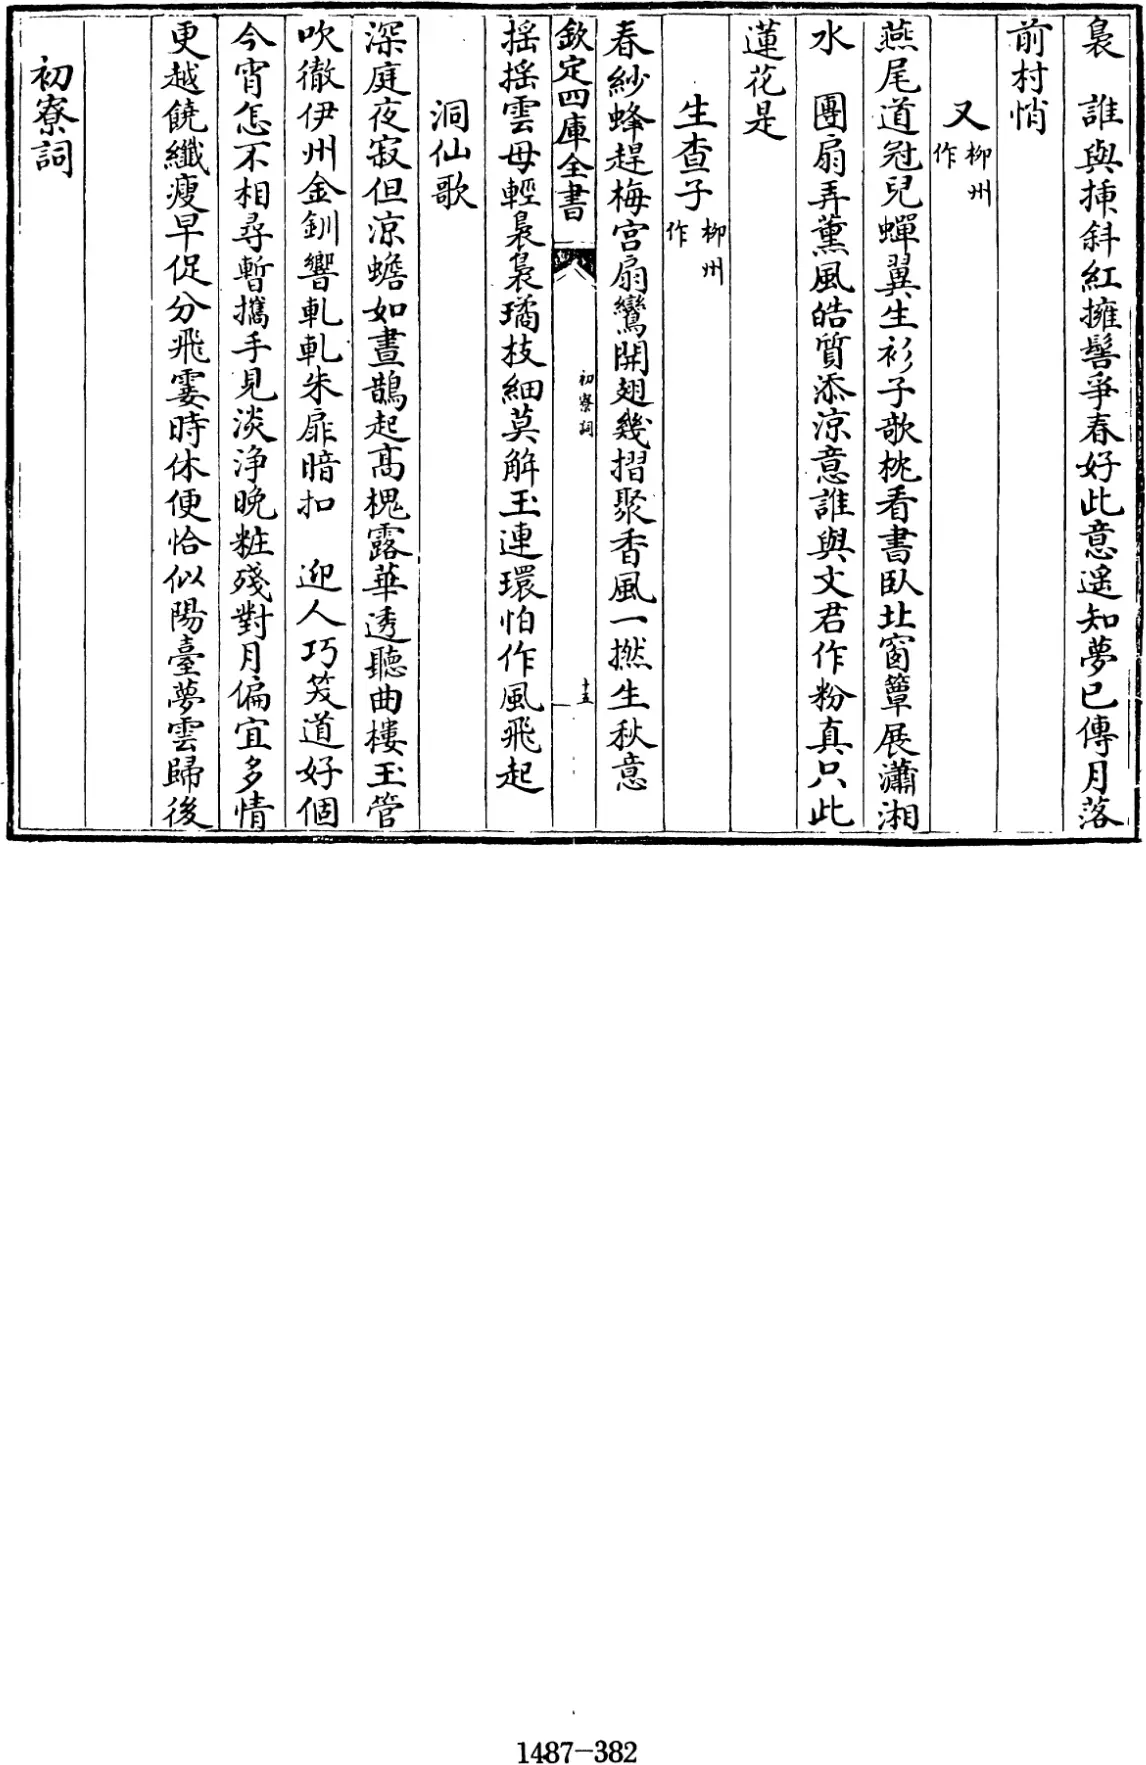 裊　誰與揷斜紅擁髻爭春好此意遥知夢已傳月落
前村悄
又柳州作
燕尾道冠兒蟬翼生衫子欹枕看書臥北窗簟展瀟湘
水　團扇弄薰風皓質添涼意誰與文君作粉真只此
蓮花是
生查子柳州作
春紗蜂趕梅宮扇鸞開翅幾摺聚香風一撚生秋意
欽定四庫全書
初寮詞
十五
揺揺雲母輕裊裊璚枝細莫解玉連環怕作風飛起
洞仙歌
深庭夜寂但涼蟾如晝鵲起高槐露華透聽曲樓玉管
吹徹伊州金釧響軋軋朱扉暗扣　迎人巧笑道好個
今宵怎不相尋暫攜手見淡浄晚粧殘對月偏宜多情
更越饒纖瘦早促分飛霎時休便恰似陽臺夢雲歸後
初寮詞
1487-382